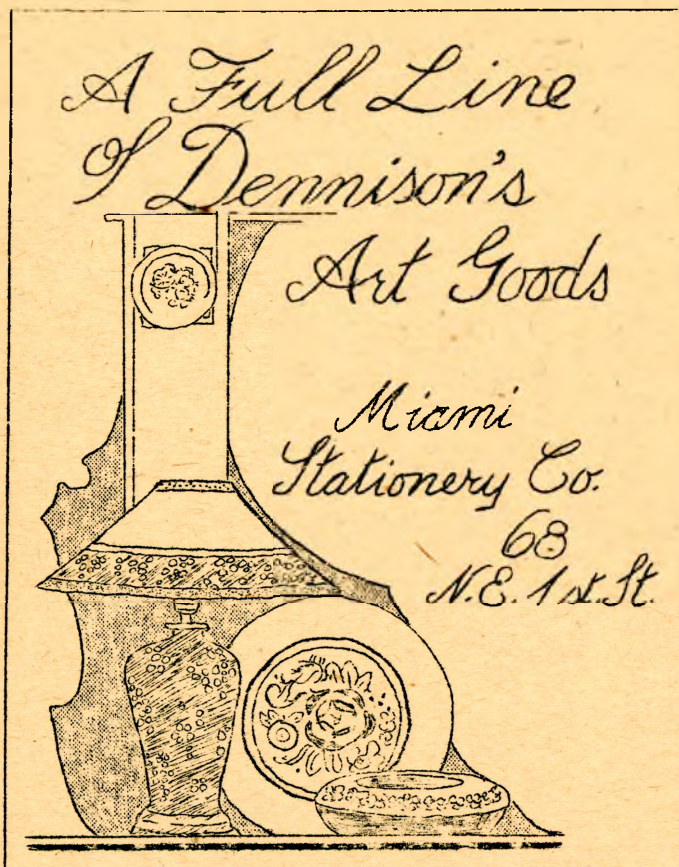 A Full Line
Of Dennison's
Art Goods
Miami
Stationery Co.
68
N.E. 1st. St.